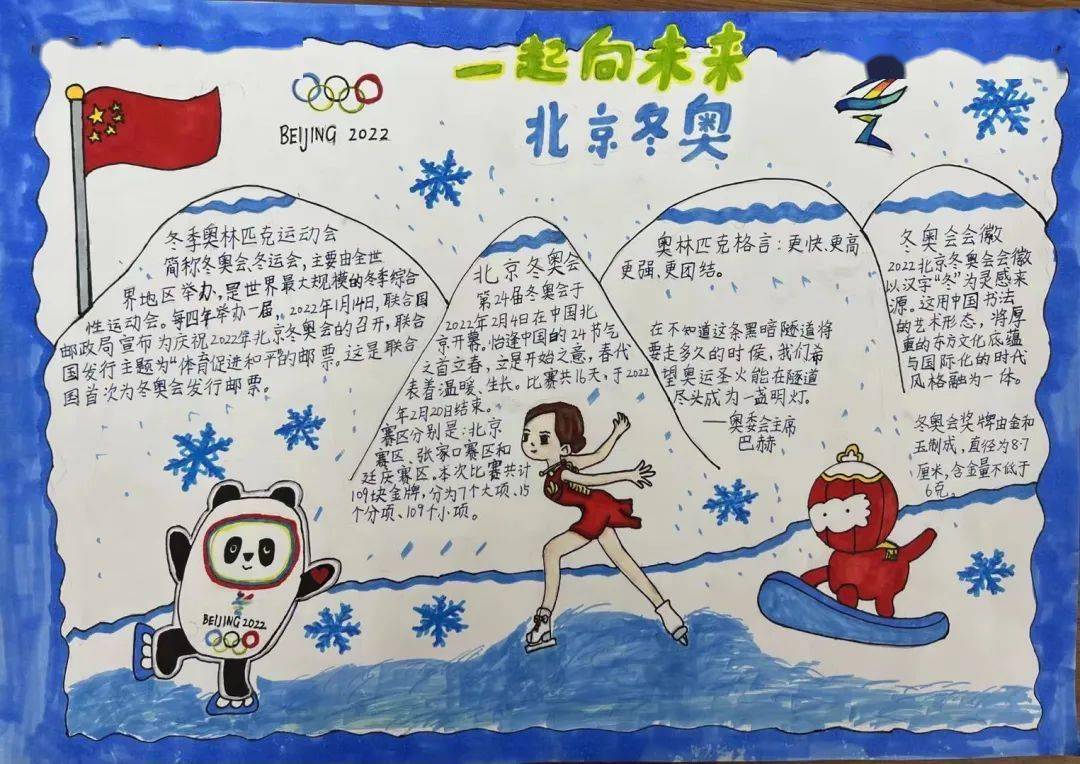 一起向未来
北京冬奥
BEIJING 2022
冬季奥林匹克运动会
简称冬奥会、冬运会，主要由全世
界地区举办，是世界最大规模的冬季综合
性运动会。每四年举办一届，2022年1月14日，联合国
邮政局宣布为庆祝2022年北京冬奥会的召开，联合
国发行主题为“体育促进和平”的邮票。这是联合
国首次为冬奥会发行邮票。
北京冬奥会
第24届冬奥会于
2022年2月4日在中国北
京开幕。恰逢中国的24节气
之首立春，立是开始之意，春代
表着温暖、生长。比赛共16天，于2022
年2月20日结束。
赛区分别是：北京
赛区、张家口赛区和
延庆赛区。本次比赛共计
109块金牌，分为7个大项、15
个分项、109个小项。
奥林匹克格言：更快、更高
更强、更团结。
在不知道这条黑暗隧道将
要走多久的时候，我们希
望奥运圣火能在隧道
尽头成为一盏明灯。
——奥委会主席
巴赫
冬奥会会徽
2022北京冬奥会会徽
以汉字“冬”为灵感来
源。这用中国书法
的艺术形态，将厚
重的东方文化底蕴
与国际化的时代
风格融为一体。
冬奥会奖牌由金和
玉制成，直径为8.7
厘米，含金量不低于
6克。
BEIJING 2022